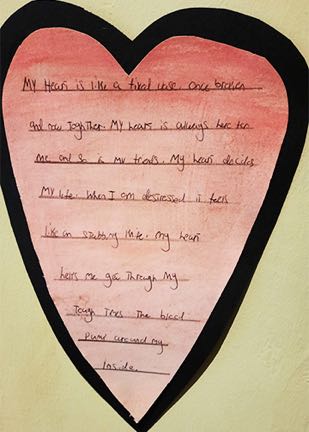 My Heart is like a fixed vase, once broken
and now together My heart is always here for
me and so is my friends. My heart decides
My life. When I am desressed it feels
like an stabbing knife. My heart
helps me goe Through My
Tough Times The blood
Pump around my
Inside